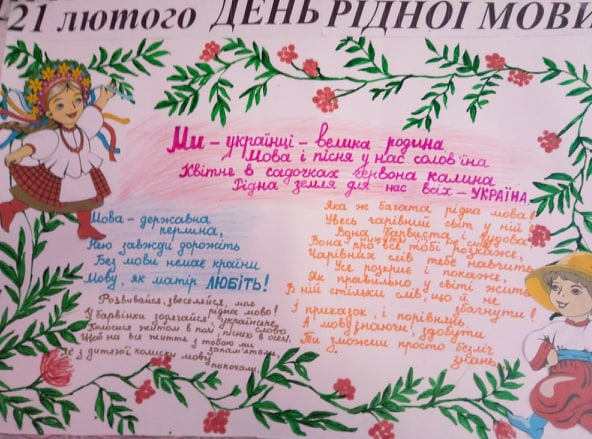 21 ЛЮТОГО ДЕНЬ РІДНОЇ МОВИ
Ми – українці – велика родина
Мова і пісня у нас солов'їна
Квітне в садочках червона калина
Рідна земля для нас всіх – УКРАЇНА.
Мова – державна
перлина,
Нею завжди дорожіть
Без мови немає країни
Мову, як матір ЛЮБІТЬ!
Розвивайся, звеселяйся, моя
рідна мово!
У барвінки зодягайся, українське
слово
Колосися житом в полі, піснею в оселі.
Щоб на все життя з тобою ми
запам'ятали,
Як з дитячої колиски мову
покохали.
Яка ж багата рідна мова!
Увесь чарівний світ у ній!
Вона барвиста і чудова,
Вона про все тобі розкаже,
Чарівних слів тебе навчить
Усе розкриє і покаже,
Як правильно у світі жить
В ній стільки слів, що й не
збагнути!
І приказок, і порівнянь,
А мову знаючи, здобути
Ти зможеш просто безліч
знань.